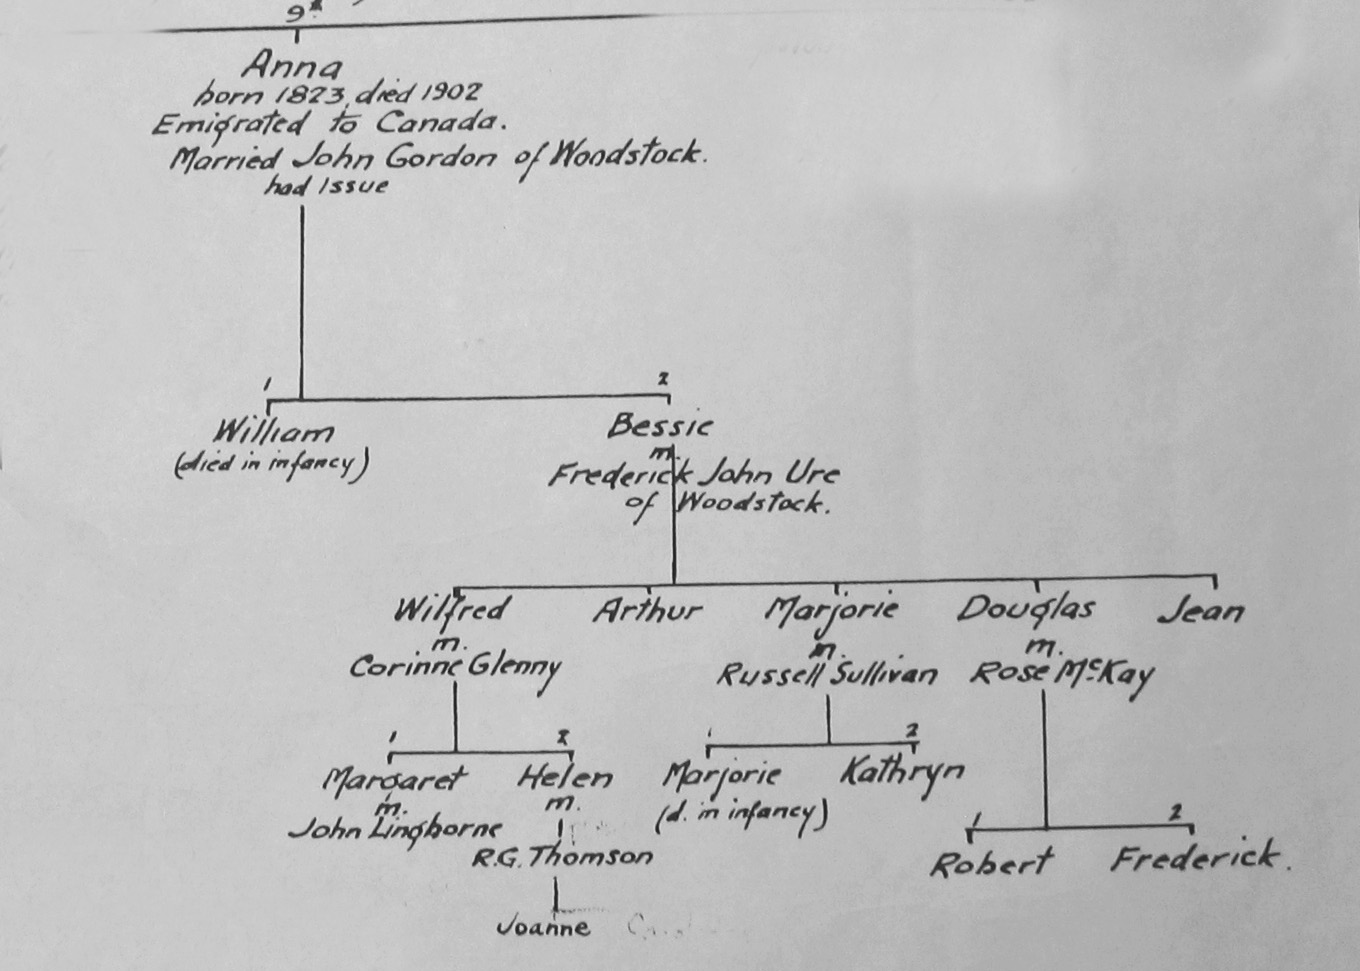 9th
Anna
born 1823, died 1902
Emigrated to Canada.
Married John Gordon of Woodstock.
had Issue
1 2
William Bessie
(died in infancy) m.
Frederick John Ure
of Woodstock.
Wilfred Arthur Marjorie Douglas Jean
m. m. m.
Corinne Glenny Russell Sullivan Rose McKay
1 2 1 2
Margaret Helen Marjorie Kathryn
m. m. (d. in infancy)
John Lingborne 1 2
R.G. Thomson Robert Frederick.
Joanne